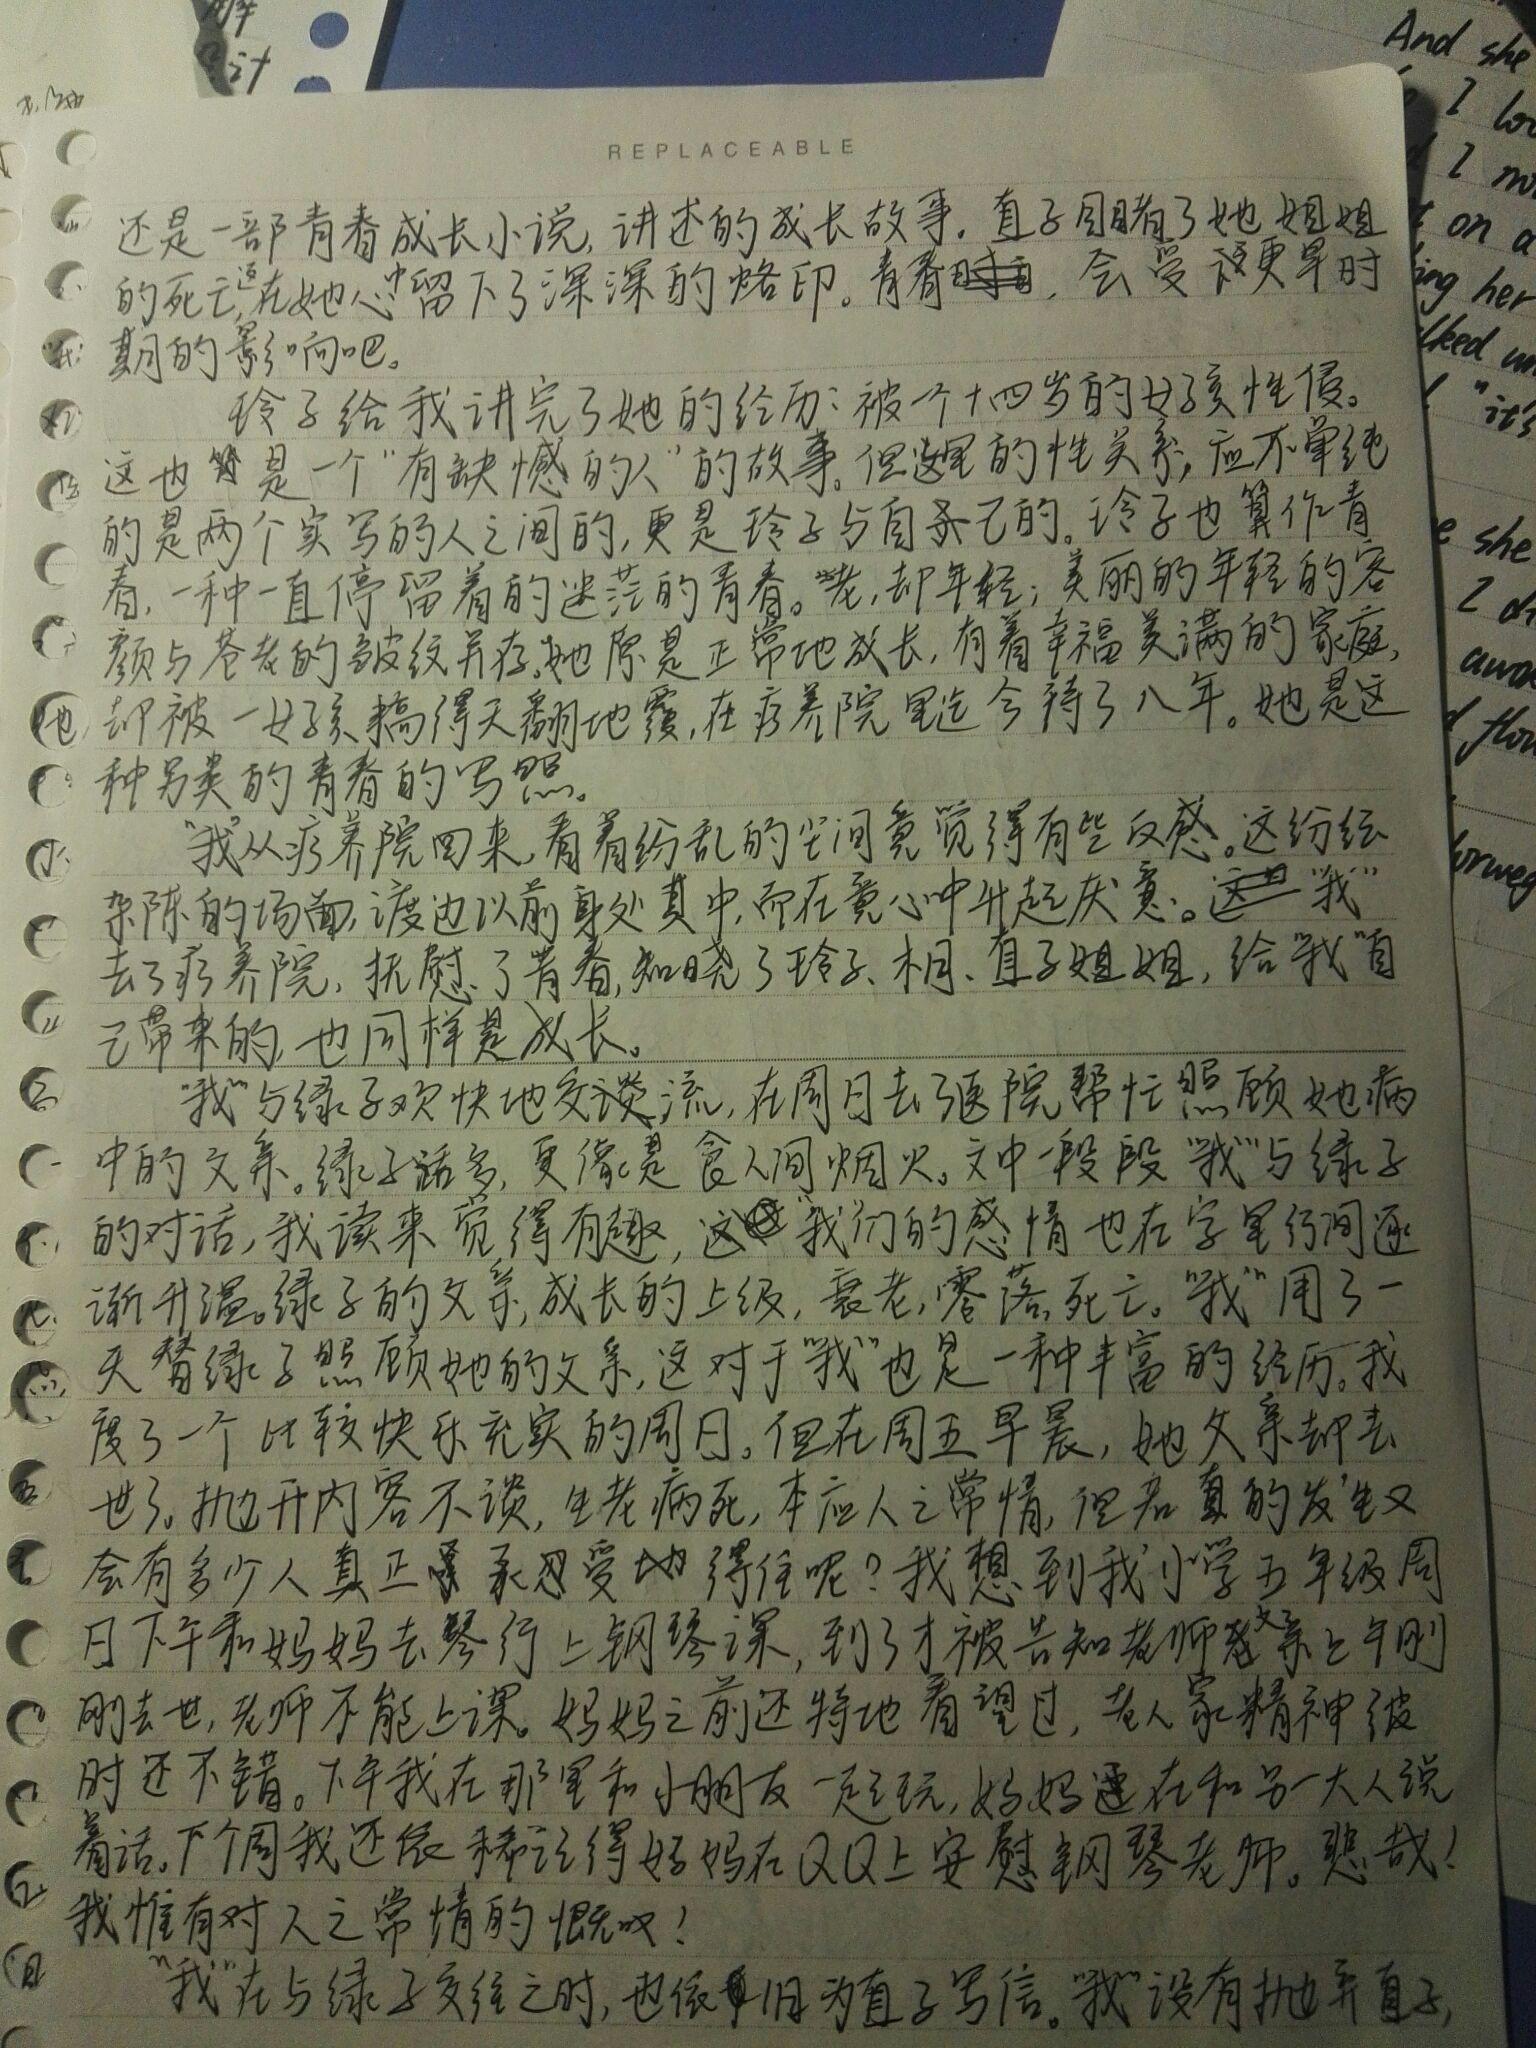 REPLACEABLE
还是一部青春成长小说，讲述的成长故事。直子目睹了她姐姐
的死亡，这在她心中留下了深深的烙印。青春，会受更早时
期的影响吧。
玲子给我讲完了她的经历：被个十四岁的女孩性侵。
这也算是一个“有缺憾的人”的故事。但这里的性关系，应不单纯
的是两个实写的人之间的，更是玲子与自己的。玲子也算作青
春，一种一直停留着的迷茫的青春。老，却年轻；美丽的年轻的容
颜与苍老的皱纹并存。她原是正常地成长，有着幸福美满的家庭，
却被一女孩搞得天翻地覆，在疗养院里迄今待了八年。她是这
种另类的青春的写照。
“我”从疗养院回来，看着纷乱的空间竟觉得有些反感。这纷纭
杂陈的场面，渡边以前身处其中，而在竟心中升起厌意。“我”
去了疗养院，抚慰了青春，知晓了玲子、木月、直子姐姐，给“我”自
己带来的，也同样是成长。
“我”与绿子欢快地交流，在周日去了医院帮忙照顾她病
中的父亲。绿子话多，更像是食人间烟火。文中一段段“我”与绿子
的对话，我读来觉得有趣，这“我”们的感情也在字里行间逐
渐升温。绿子的父亲，成长的上级，衰老，零落，死亡。“我”用了一
天替绿子照顾她的父亲，这对于“我”也是一种丰富的经历。我
度了一个比较快乐充实的周日。但在周五早晨，她父亲却去
世了。抛开内容不谈，生老病死，本应人之常情，但若真的发生又
会有多少人真正承受得住呢？我想到我小学五年级周
日下午和妈妈去琴行上钢琴课，到了才被告知老师父亲上午刚
刚去世，老师不能上课。妈妈之前还特地看望过，老人家精神彼
时还不错。下午我在那里和小朋友一起玩，妈妈在和另一大人说
着话。下个周我还依稀记得妈妈在QQ上安慰钢琴老师。悲哉！
我惟有对人之常情的慨叹！
“我”在与绿子交往之时，也依旧为直子写信。“我”没有抛弃直子，
And she
I
I
on a
her
"it's
she
I